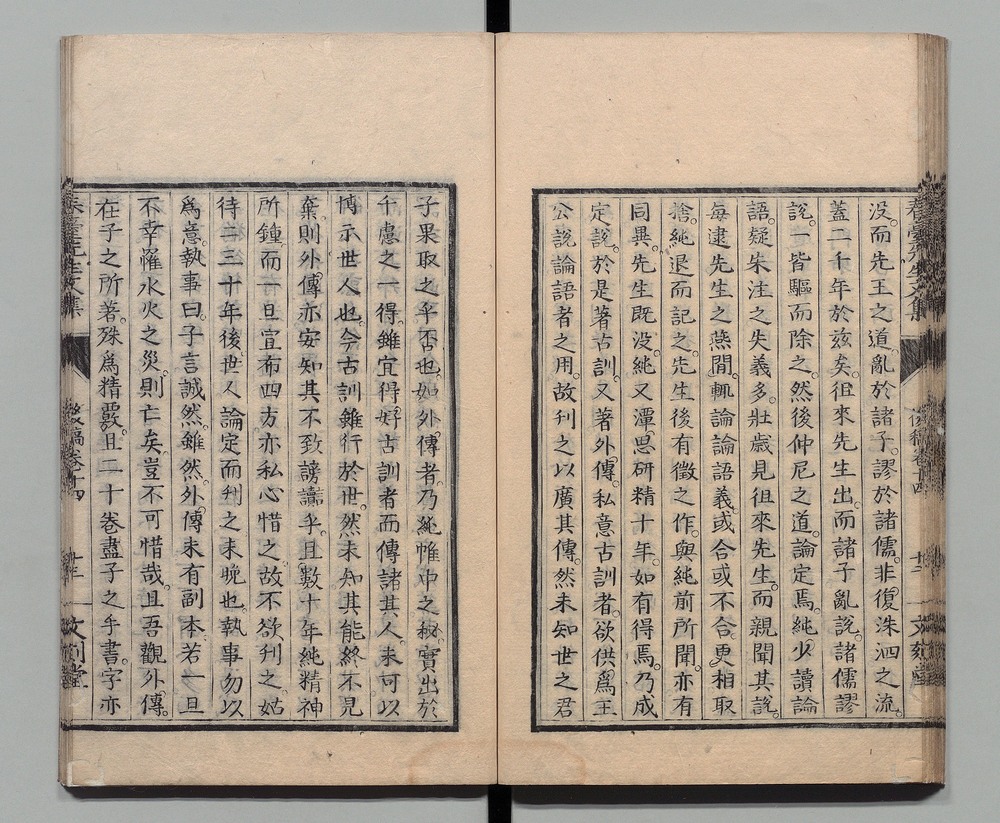 没。而先王之道。亂於諸子。謬於諸儒。非復洙泗之流。
蓋二千年於茲矣。徂來先生出。而諸子亂說。諸儒謬
說。一皆驅而除之。然後仲尼之道。論定焉。純少讀論
語。疑朱注之失義多。壯歲見徂來先生。而親聞其說。
每逮先生之燕間。輒論論語義。或合或不合。更相取
捨。純退而記之。先生後有徵之作。與純前所聞。亦有
同異。先生既没。純又潭思研精十年。如有得焉。乃成
定說。於是著古訓。又著外傳。私意古訓者。欲供爲王
公說論語者之用。故刊之以廣其傳。然未知世之君
子果取之乎否也。如外傳者。乃純帷中之秘。寶出於
千慮之一得。雖宜得好古訓者而傳諸其人。未可以
博示世人也。今古訓雖行於世。然未知其能終不見
棄。則外傳亦安知其不致謗讟乎。且數十年純精神
所鐘。而一旦宣布四方。亦私心惜之。故不欲刊之。姑
待二三十年後。世人論定而刊之。未晚也。執事勿以
爲意。執事曰。子言誠然。雖然。外傳未有副本。若一旦
不幸罹水火之災。則亡矣。豈不可惜哉。且吾觀外傳。
在子之所著。殊爲精覈。且二十卷盡子之手書。字亦
春臺先生文集
後稿卷十四